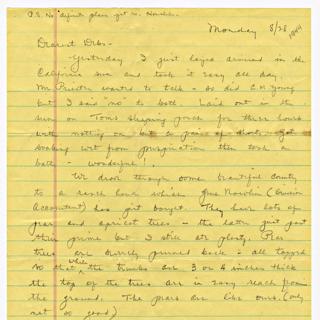 P.S. No definite plans yet re. Honolulu.
Monday 8/28
1944
Dearest Debs-
Yesterday I just layed around in the
California sun and took it easy all day.
Mr Priester wanted to talk - so did E.H. Young
but I said no to both. Laid out in the
sun on Tom's sleeping porch for three hours
with nothing on but a pair of shorts. Got
soaking wet from perspiration then took a
bath - wonderful!.
We drove through some beautiful country
to a ranch house which Gus Nowlin (Division
Accountant) has just bought. They have lots of
pear and apricot trees - the latter just past
their prime but I still ate plenty. Pear
trees are severely pruned back - all topped
so that while the trunks are 3 or 4 inches thick
the top of the trees are in easy reach from
the ground. The pears are like ours. (only
not so good)